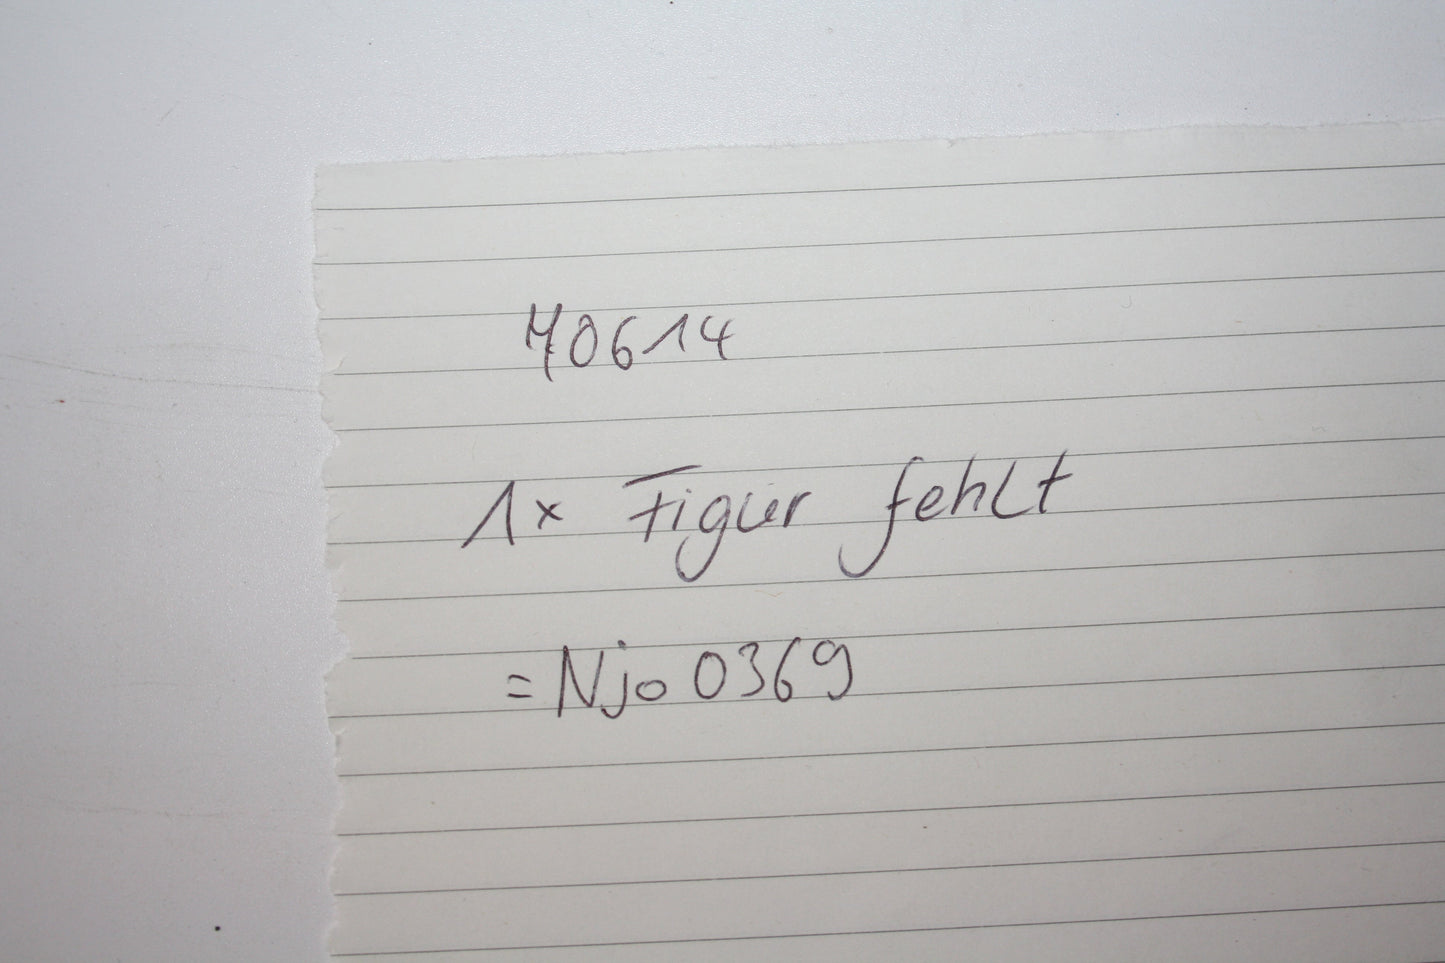 70614
1x Figur fehlt
= Njo 0369